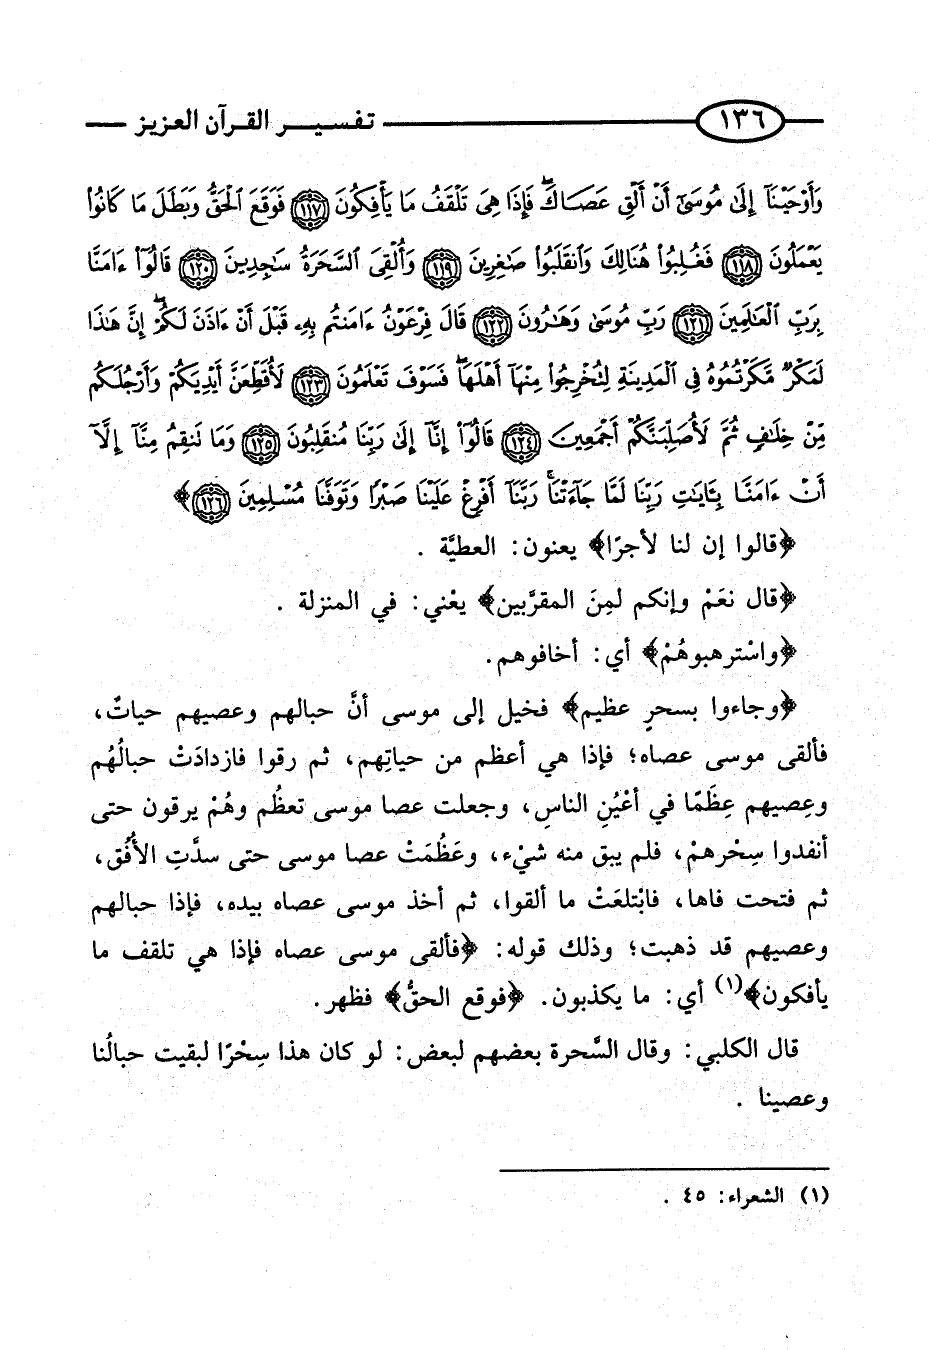 ١٣٦ تفسير القرآن العزيز
وَأَوْحَيْنَآ إِلَىٰ مُوسَىٰٓ أَنْ أَلْقِ عَصَاكَۖ فَإِذَا هِىَ تَلْقَفُ مَا يَأْفِكُونَ ﴿١١٧﴾ فَوَقَعَ ٱلْحَقُّ وَبَطَلَ مَا كَانُوا۟
يَعْمَلُونَ ﴿١١٨﴾ فَغُلِبُوا۟ هُنَالِكَ وَٱنقَلَبُوا۟ صَـٰغِرِينَ ﴿١١٩﴾ وَأُلْقِىَ ٱلسَّحَرَةُ سَـٰجِدِينَ ﴿١٢٠﴾ قَالُوٓا۟ ءَامَنَّا
بِرَبِّ ٱلْعَـٰلَمِينَ ﴿١٢١﴾ رَبِّ مُوسَىٰ وَهَـٰرُونَ ﴿١٢٢﴾ قَالَ فِرْعَوْنُ ءَامَنتُم بِهِۦ قَبْلَ أَنْ ءَاذَنَ لَكُمْۖ إِنَّ هَـٰذَا
لَمَكْرٌ مَّكَرْتُمُوهُ فِى ٱلْمَدِينَةِ لِتُخْرِجُوا۟ مِنْهَآ أَهْلَهَاۖ فَسَوْفَ تَعْلَمُونَ ﴿١٢٣﴾ لَأُقَطِّعَنَّ أَيْدِيَكُمْ وَأَرْجُلَكُم
مِّنْ خِلَـٰفٍ ثُمَّ لَأُصَلِّبَنَّكُمْ أَجْمَعِينَ ﴿١٢٤﴾ قَالُوٓا۟ إِنَّآ إِلَىٰ رَبِّنَا مُنقَلِبُونَ ﴿١٢٥﴾ وَمَا تَنقِمُ مِنَّآ إِلَّآ
أَنْ ءَامَنَّا بِـَٔايَـٰتِ رَبِّنَا لَمَّا جَآءَتْنَاۚ رَبَّنَآ أَفْرِغْ عَلَيْنَا صَبْرًا وَتَوَفَّنَا مُسْلِمِينَ ﴿١٢٦﴾﴾
﴿قالوا إن لنا لأجرًا﴾ يعنون: العطيَّة .
﴿قال نعَمْ وإنكم لمِنَ المقرَّبين﴾ يعْني: في المنزلة .
﴿واسْترهبوهُمْ﴾ أي: أخافوهم.
﴿وجاءوا بسحرٍ عظيم﴾ فخيل إلى موسى أنَّ حبالهم وعصيهم حياتٌ،
فألقى موسى عصاه؛ فإذا هي أعظم من حياتِهم، ثم رقوا فازدادَتْ حبالُهُم
وعِصيهم عِظَمًا في أعْيُنِ الناسِ، وجعلت عصا موسى تعظُم وهُمْ يرقون حتى
أنفدوا سِحْرهمْ، فلم يبق منه شيْء، وعَظُمَتْ عصا موسى حتى سدَّتِ الأُفُق،
ثم فتحت فاها، فابْتلعَتْ ما ألقوا، ثم أخذ موسى عصاه بيده، فإذا حبالهم
وعصيهم قد ذهبت؛ وذلك قوله: ﴿فألقى موسى عصاه فإذا هي تلقف ما
يأفكون﴾(١) أي: ما يكذبون. ﴿فوقع الحقُّ﴾ فظهر.
قال الكلبي: وقال السَّحرة بعضهم لبعض: لو كان هذا سِحْرًا لبقيت حبالُنا
وعصينا .
(١) الشعراء: ٤٥ .